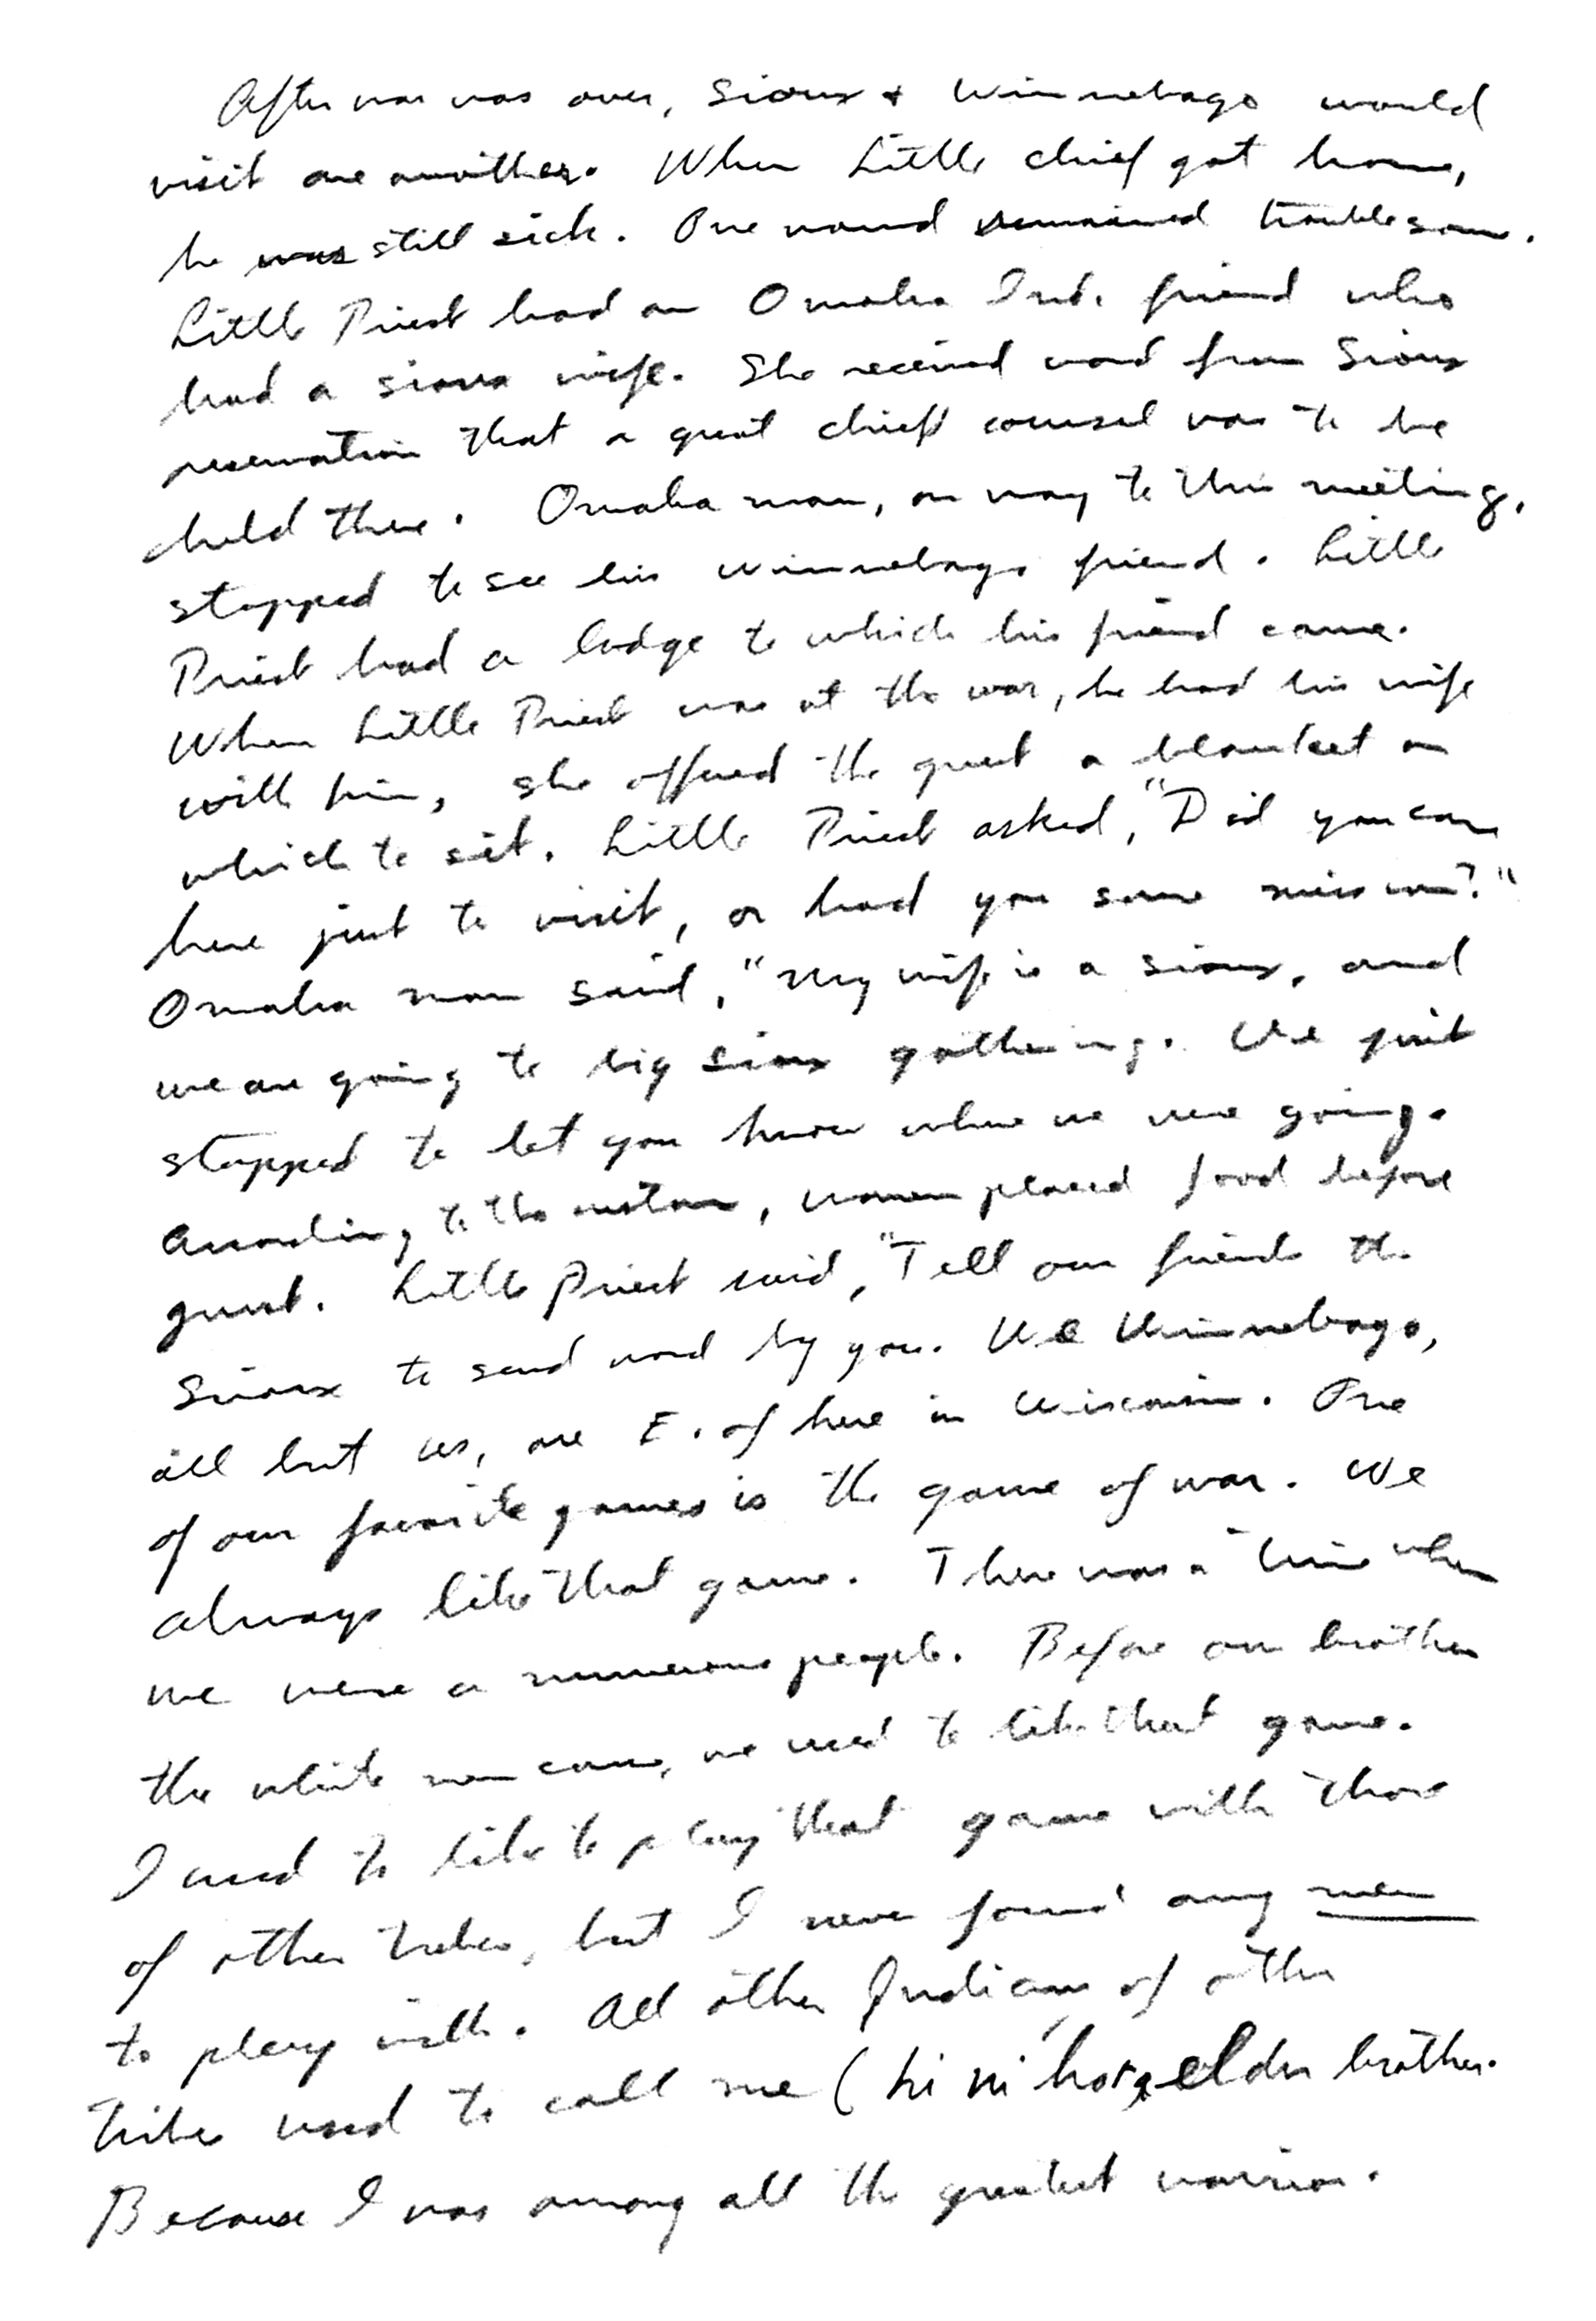 After war was over, Sioux & Winnebago would
visit one another. When Little chief got home,
he was still sick. One wound remained troublesome.
Little Priest had an Omaha Ind. friend who
had a Sioux wife. She received word from Sioux
reservation that a great chief counsel was to be
held there. Omaha man, on way to this meeting,
stopped to see his Winnebago friend. Little
Priest had a lodge to which his friend came.
When Little Priest was at the war, he had his wife
with him, she offered the guest a blanket on
which to sit. Little Priest asked, "Did you come
here just to visit, or had you some mission?"
Omaha man said, "My wife is a Sioux, and
we are going to big Sioux gathering. We just
stopped to let you know where we were going.
According to the custom, women placed food before
guest. Little Priest said, "Tell our friends the
Sioux to send word by you. We Winnebago,
all but us, are E. of here in Wisconsin. One
of our favorite games is the game of war. We
always like that game. There was a time when
we were a numerous people. Before our brother
the white man came, we used to like that game.
I used to like to play that game with those
of other tribes, but I never found any men
to play with. All other Indians of other
tribes used to call me (hi ni elder brother.
Because I was among all the greatest warrior.